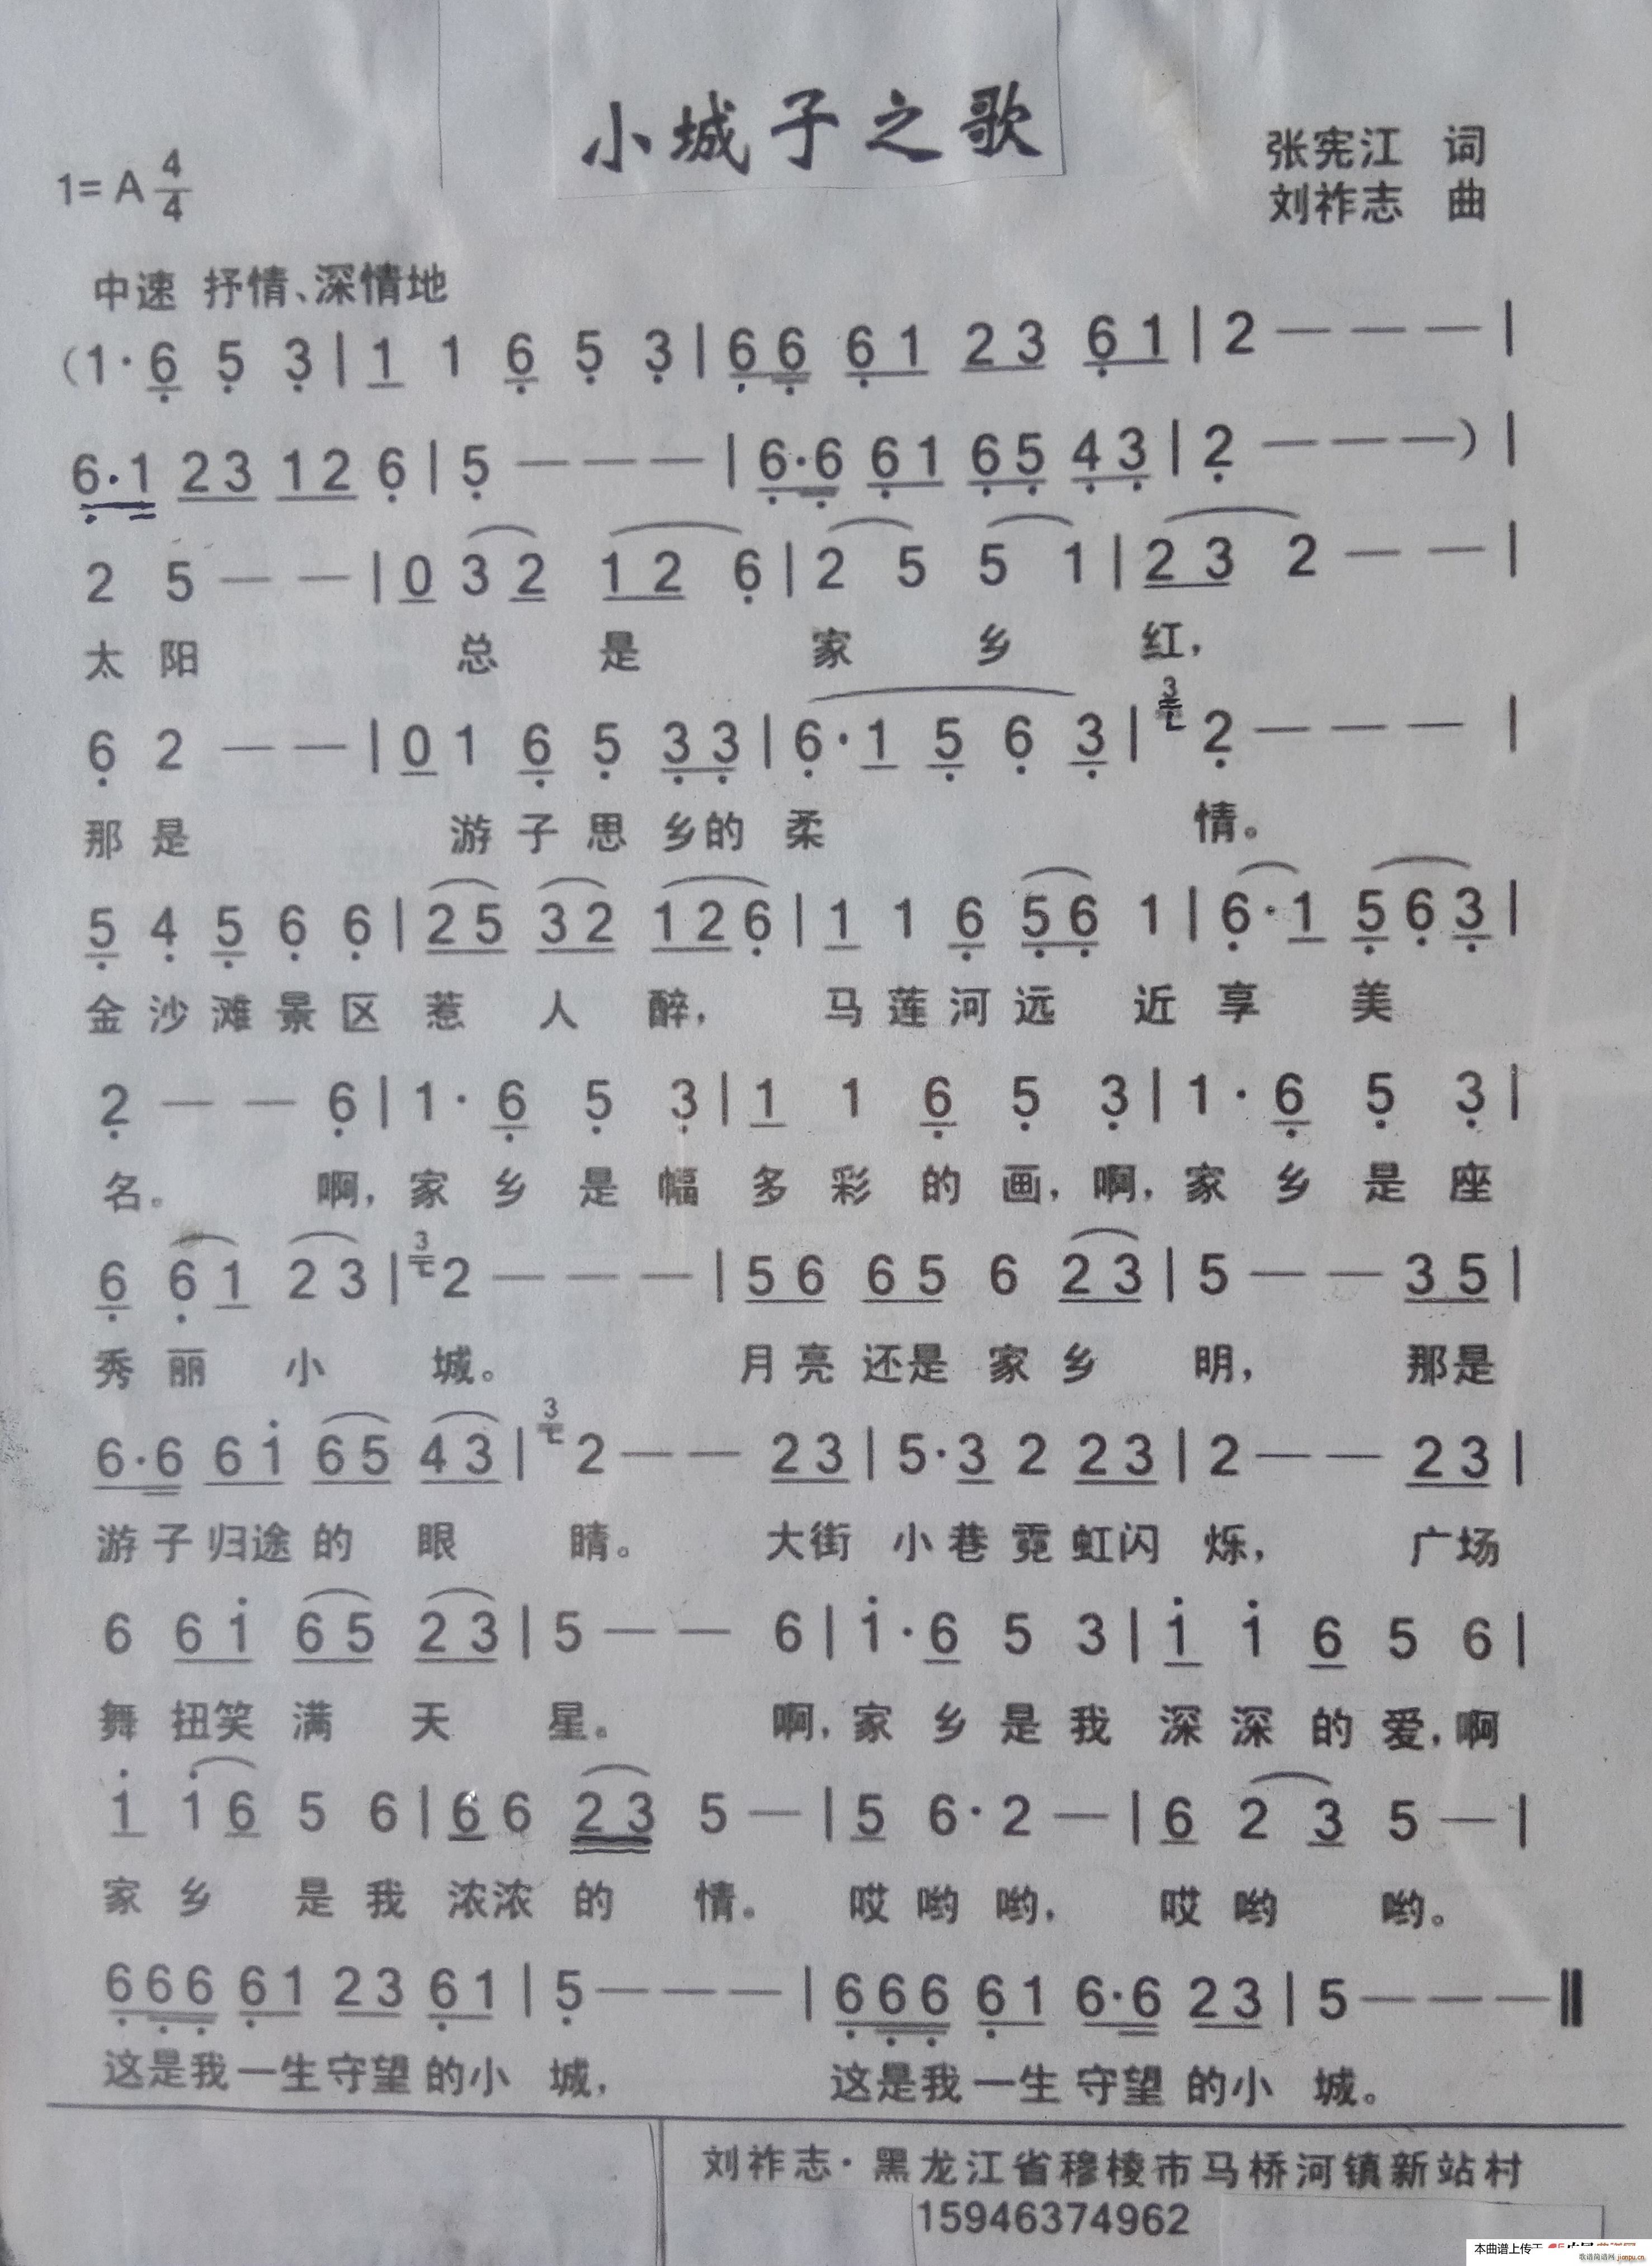 小城子之歌
1=A 4/4
张宪江 词
刘祚志 曲
中速 抒情、深情地
(1·6 5 3|1 1 6 5 3|66 61 23 61|2———|
6·1 23 12 6|5———|6·6 61 65 43|2———)|
2 5——|0 3 2 12 6|2 5 5 1|23 2——|
太 阳 总 是 家 乡 红,
6 2——|0 1 6 5 33|6·1 5 6 3|3 2———|
那 是 游 子 思 乡的 柔 情。
5 4 5 6 6|25 32 126|1 1 6 56 1|6·1 563|
金 沙 滩 景 区 惹 人 醉, 马 莲 河 远 近 享 美
2——6|1·6 5 3|1 1 6 5 3|1·6 5 3|
名。 啊,家 乡 是 幅 多 彩 的 画,啊,家 乡 是 座
6 61 23|3 2———|56 65 6 23|5——35|
秀 丽 小 城。 月 亮 还是 家 乡 明, 那是
6·6 61 65 43|3 2——23|5·3 2 23|2——23|
游 子 归途 的 眼 睛。 大街 小 巷 霓 虹闪 烁, 广场
6 61 65 23|5——6|1·6 5 3|1 1 6 5 6|
舞 扭笑 满 天 星。 啊,家 乡 是 我 深 深 的 爱,啊
1 16 5 6|66 23 5—|5 6·2—|6 2 3 5—|
家 乡 是 我 浓浓 的 情。 哎 哟 哟, 哎 哟 哟。
666 61 23 61|5———|666 61 6·6 23|5———‖
这是我一生守望 的小 城, 这是我一生 守望 的小 城。
刘祚志·黑龙江省穆棱市马桥河镇新站村
15946374962
本曲谱上传于
歌谱简谱网 jianpu.cn